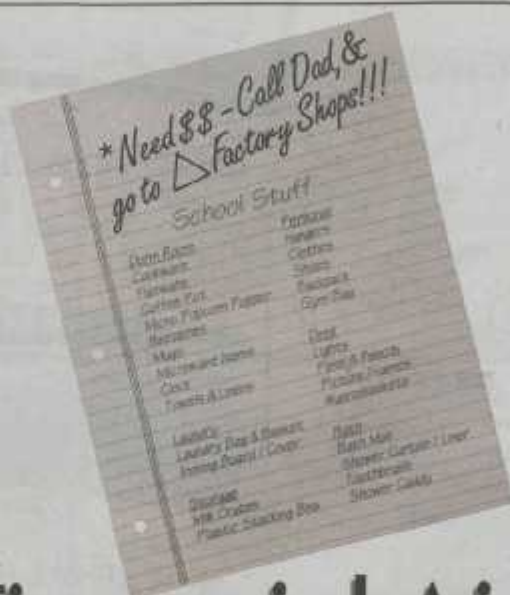 * Need $$ - Call Dad, &
go to Factory Shops!!!
School Stuff
Dorm Room
Cookware
Flatware
Coffee Pot
Micro Popcorn Popper
Mugs
Microwave
Clock
Towels & Linens
Laundry
Laundry Bag & Basket
Ironing Board / Cover
Storage
Milk Crates
Plastic Stacking
Personal
Hangers
Clothes
Shoes
Backpack
Gym Bag
Desk
Lights
Pens & Pencils
Picture Frames
Bath
Bath Mat
Shower Curtain / Liner
Toothbrush
Shower Caddy